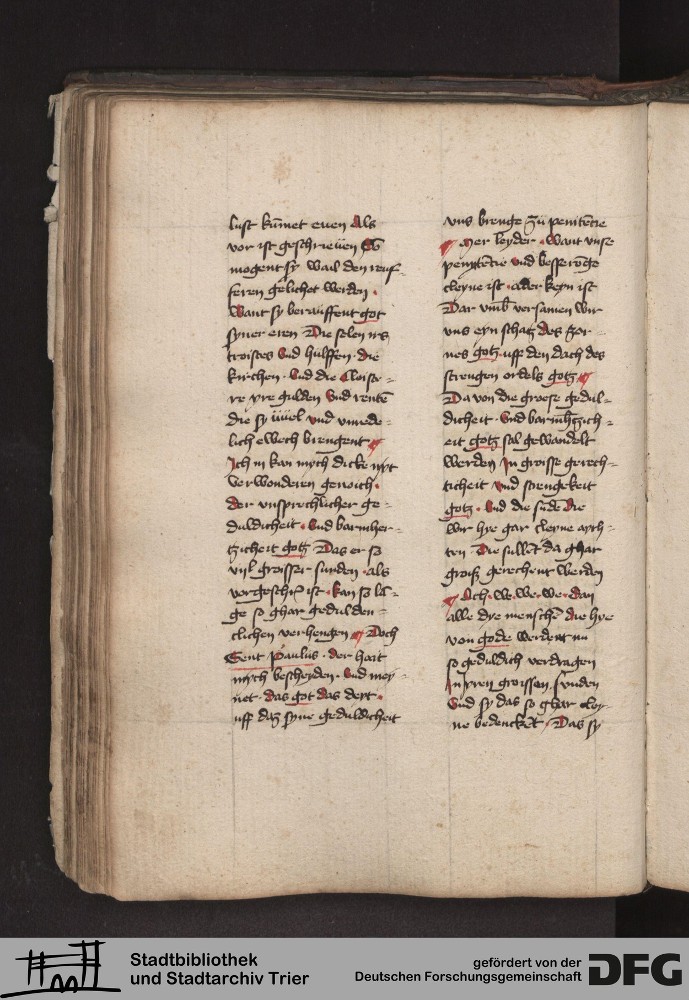 lust kūmet even Als
vor ist geschrieuen Ob
mogent sy wail den reuf-
feren gelichet werden ·
Want sy berauffent got
syner eren Die selen irs
troistes vnd hulffen · die
kirchen · vnd die Cloiste-
re yre gulden vnd rentē
die sy üüel vnd vnrede-
lich ewech brengent ¶
Ich in kan mych dicke nyt
verwonderen genoich ·
der vnsprechlicher ge-
duldicheit · vnd barmher-
tzicheit gotz Das er so
vyl groisser sunden · als
vorgeschrē ist · kan so lā-
ge so ghar gedulden-
clichen verhengen ¶ Doch
Sent Paulus · der hait
mych bescheyden · vnd mey-
net · das got das deyt ·
uff daz syne geduldicheit
vns brenge zü penitēcie
¶ Mer leyder · want vnse
penitēcie vnd besserōge
cleyne ist · ader keyn ist
Dar vmb versamen wir
vns eyn schatz des zor-
nes gotz uff den dach des
strengen ordels gotz ¶
Da von die groesse gedul-
dicheit · vnd barmhtzich-
eit gotz sal gewandelt
werden in groisse gerech-
ticheit vnd strengekeit
gotz · vnd die sude die
wir hye gar cleyne ach-
ten Die sullēt da ghar
groiß gerechent werden
¶ Ach · we · we · we · dan
alle dye menschē die hye
von gode werdent nu
so geduldich verdragen
in yren groissen sunden
Vnd sy das so ghar cley-
ne bedenckēt · Das sy
Stadtbibliothek
und Stadtarchiv Trier
gefördert von der
Deutschen Forschungsgemeinschaft
DFG